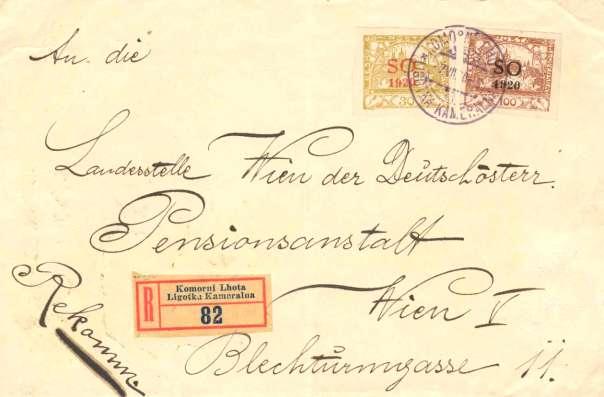 An die
SO
1920
30
SO
1920
100
Landesstelle Wien der Deutschösterr.
Pensionsanstalt
Wien V
Blechturmgasse 11.
Rekomm.
R
Komorní Lhota
Ligotka Kameralna
82